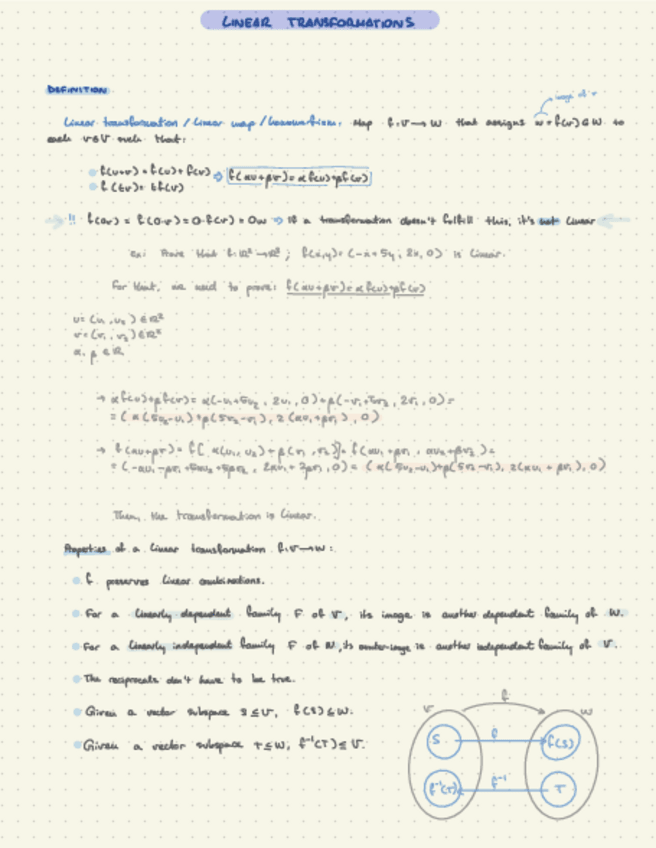 LINEAR TRANSFORMATIONS
DEFINITION
image of v
Linear transformation / Linear map / homomorphism: Map f: V → W that assigns w = f(v) ∈ W to
each v ∈ V such that:
f(u+v) = f(u) + f(v) ⇒ f(αu+βv) = αf(u)+βf(v)
f(tv) = tf(v)
→ !! f(0v) = f(0·v) = 0·f(v) = 0w ⇒ if a transformation doesn't fulfill this, it's not linear ←
ex: Prove that f: ℝ² → ℝ³ ; f(x,y) = (-x + 5y, 2x, 0) is linear.
For that, we need to prove: f(αu+βv) = αf(u)+βf(v)
u = (u₁, u₂) ∈ ℝ²
v = (v₁, v₂) ∈ ℝ²
α, β ∈ ℝ
→ αf(u)+βf(v) = α(-u₁+5u₂, 2u₁, 0)+β(-v₁+5v₂, 2v₁, 0) =
= (α(5u₂-u₁)+β(5v₂-v₁), 2(αu₁+βv₁), 0)
→ f(αu+βv) = f[α(u₁, u₂) + β(v₁, v₂)] = f(αu₁+βv₁, αu₂+βv₂) =
= (-αu₁-βv₁+5αu₂+5βv₂, 2αu₁+2βv₁, 0) = (α(5u₂-u₁)+β(5v₂-v₁), 2(αu₁+βv₁), 0)
Then, the transformation is linear.
Properties of a linear transformation f: V → W:
f preserves linear combinations.
For a linearly dependent family F of V, its image is another dependent family of W.
For a linearly independent family F of W, its is another independent family of V.
The reciprocals don't have to be true.
Given a vector subspace S ≤ V, f(S) ≤ W.
Given a vector subspace T ≤ W, f⁻¹(T) ≤ V.
f
V W
S f f(S)
f⁻¹(T) f⁻¹ T